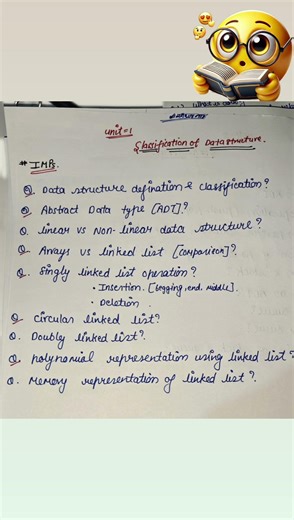 Unit=1
Classification of Data structure.
# IMPs.
Q. Data structure defination & classification?
Q. Abstract Data type [ADT]?
Q. linear vs Non-linear data structure?
Q. Arrays vs linked list [comparison]?
Q. Singly linked list operation?
• Insertion. [begging, end, middle].
• Deletion.
Q. Circular linked list?
Q. Doubly linked list?
Q. polynomial representation using linked list?
Q. Memory representation of linked list?